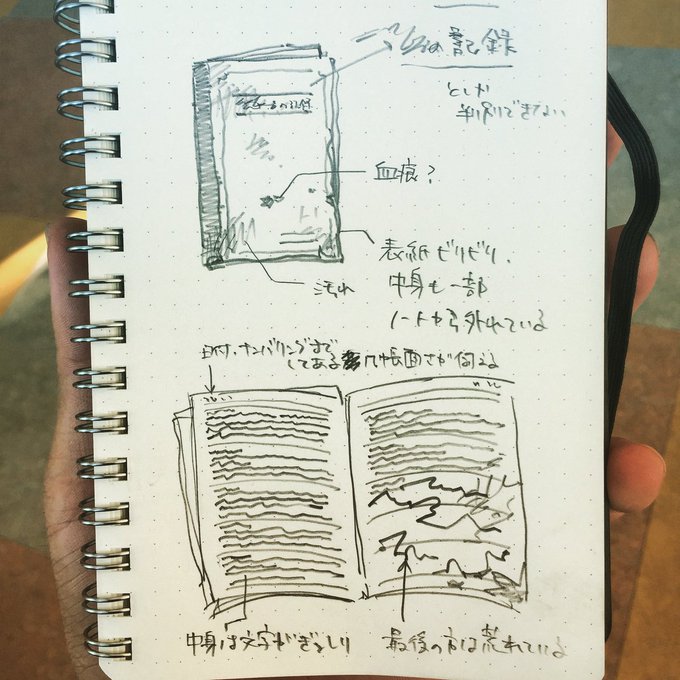 の記録
としか
判別できない
血痕?
表紙ビリビリ、
中身も一部
ノートから外れている
汚れ
日付、ナンバリングまで
してある 几帳面さが伺える
中身は文字がぎっしり
最後の方は荒れている